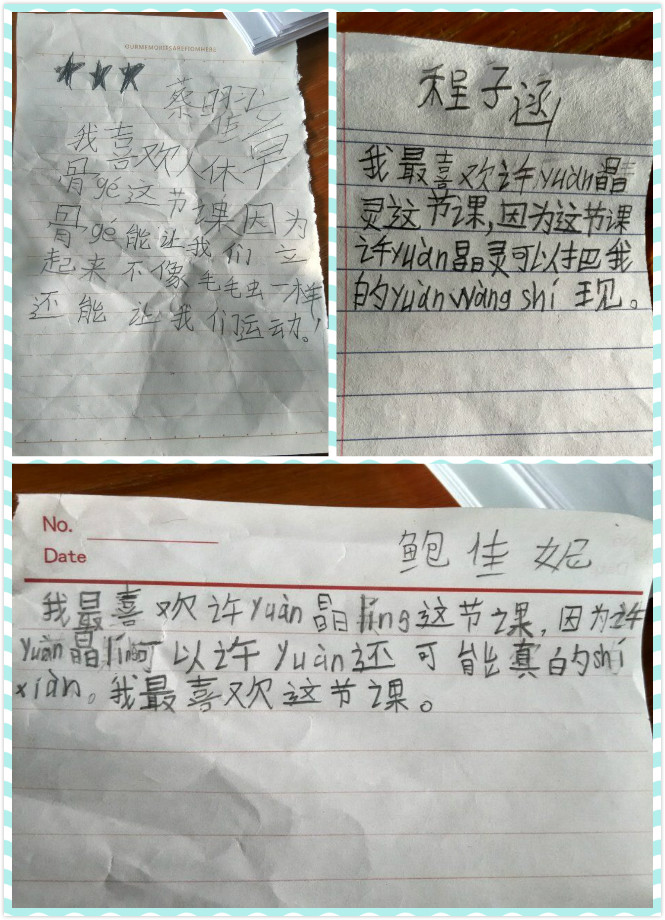 OURMEMORIESAREFROMHERE
蔡明
我喜欢人休
骨gé这节课因为
骨gé能让我们立
起来不像毛毛虫一样
还能让我们运动。!
程子涵
我最喜欢许yuàn晶
灵这节课,因为这节课
许yuàn晶灵可以把我
的yuàn wàng shí 现。
No.
Date
鲍佳妮
我最喜欢许yuàn晶líng这节课,因为许
yuàn晶líng可以许yuàn还可能真的shí
xiàn。我最喜欢这节课。